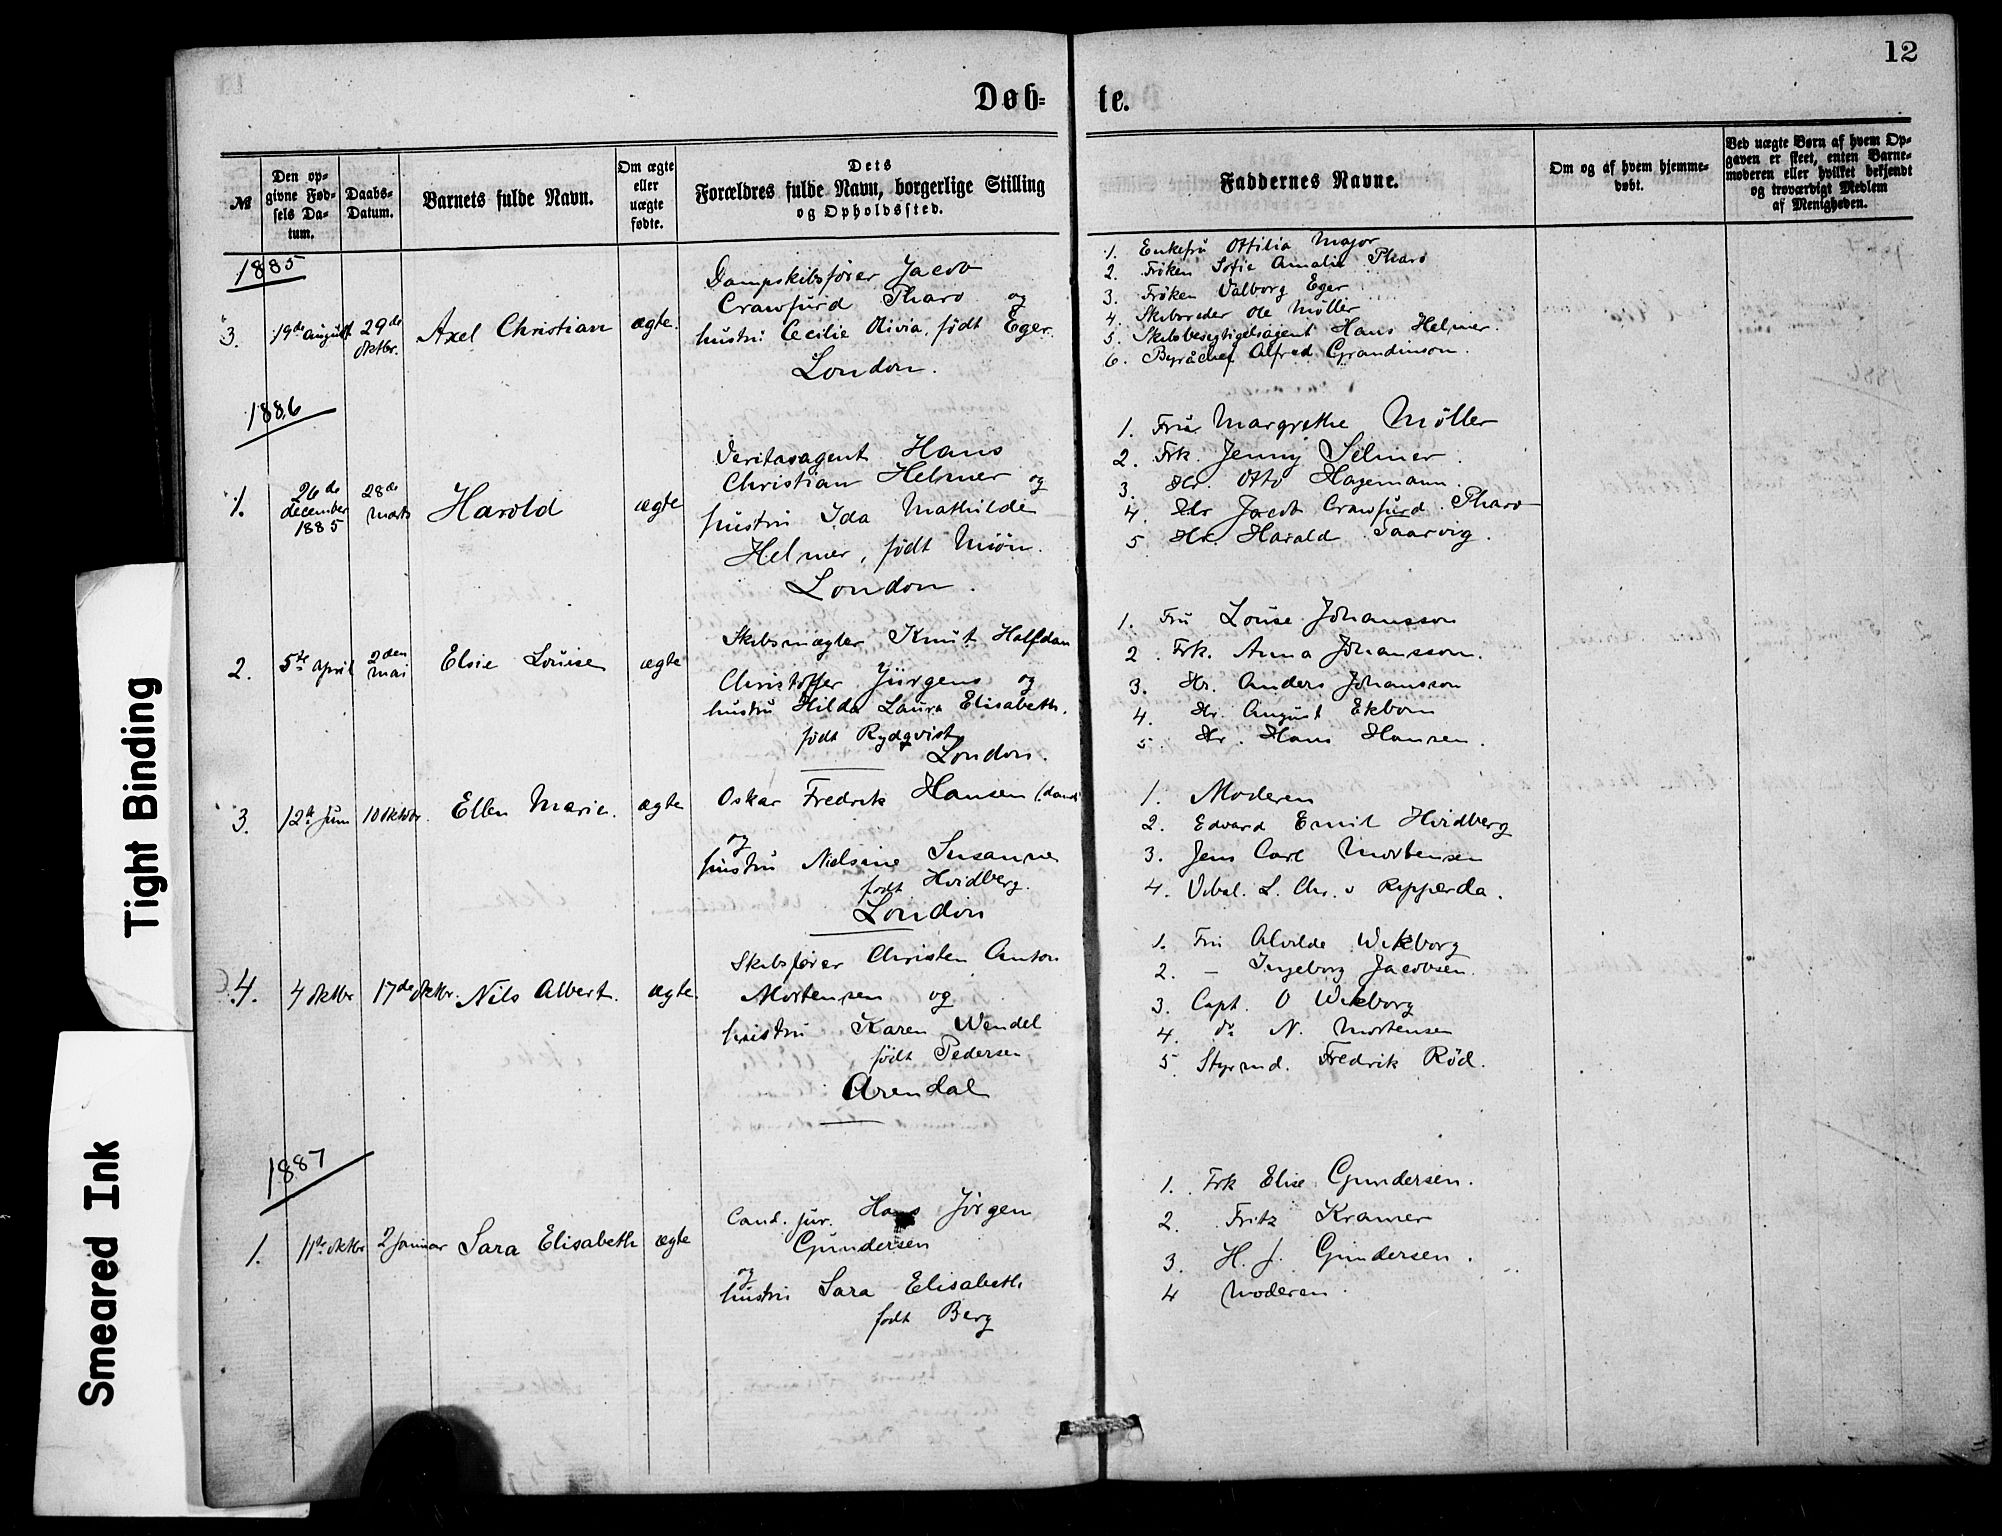 12
Døb-
te.
№
Den op-
givne Fød-
sels Da-
tum.
Daabs-
Datum.
Barnets fulde Navn.
Om ægte
eller
uægte
fødte.
Dets
Forældres fulde Navn, borgerlige Stilling
og Opholdssted.
Faddernes Navne.
Om og af hvem hjemme-
døbt.
Ved uægte Børn af hvem Op-
gaven er skeet, enten Barne-
moderen eller hvilket bekjendt
og troværdigt Medlem
af Menigheden.
1885
3.
19de august
29de
oktbr.
Axel Christian
ægte.
Dampskibsfører Jacob
Crawfurd Pharo og
hustru Cecilie Olivia, født Eger.
London.
1. Enkefru Ottilia Major
2. Frøken Sofie Amalie Pharo
3. Frøken Valborg Eger
4. Skibsreder Ole Møller
5. Skibsbesigtigelsagent Hans Helmer.
6. Byråchef Alfred Grandinson.
1886
1.
26de
december
1885
28de
marts
Harold
ægte
Veritasagent Hans
Christian Helmer og
hustru Ida Mathilde
Helmer, født Miøn.
London.
1. Frue Margrethe Møller
2. Frk. Jenny Selmer.
3. Hr. Otto Hagemann.
4. Hr Jacob Crawfurd Pharo
5 Hr. Harald Faarvig.
2.
5te April
2den
mai
Elsie Louise
ægte
Skibsmægler Knut Halfdan
Christoffer Jürgens og
hustru Hilda Laura Elisabeth.
født Rydqvist
London.
1. Fru Louise Johansson
2. Frk. Anna Johansson.
3. Hr. Anders Johansson
4. Hr. August Ekbom
5. Hr. Hans Hansen.
3.
12te Juni
10 oktbr.
Ellen Marie.
ægte
Oskar Fredrik Hansen (dansk
og
hustru Nielsine Susanne
født Hvidberg.
London
1. Moderen
2. Edvard Emil Hvidberg
3. Jens Carl Mortensen
4. L. Chr. v Ripperda.
4.
4 oktbr
17de oktbr.
Nils Albert.
ægte.
Skibsfører Christen Anton
Mortensen og
hustru Karen Wendel
født Pedersen
Arendal
1. Fru Alvilde Wikborg
2. – Ingeborg Jacobsen.
3. Capt. O Wikborg
4. do N. Mortensen
5 Styrmd. Fredrik Rød.
1887
1.
11te oktbr
2 Januar
Sara Elisabeth
ægte
Cand. jur. Hans Jørgen
Gundersen
og
hustru Sara Elisabeth
født Berg
1. Frk Elise Gundersen.
2. Fritz Kramer
3. H. J. Gundersen.
4 Moderen.
Tight Binding
Smeared Ink